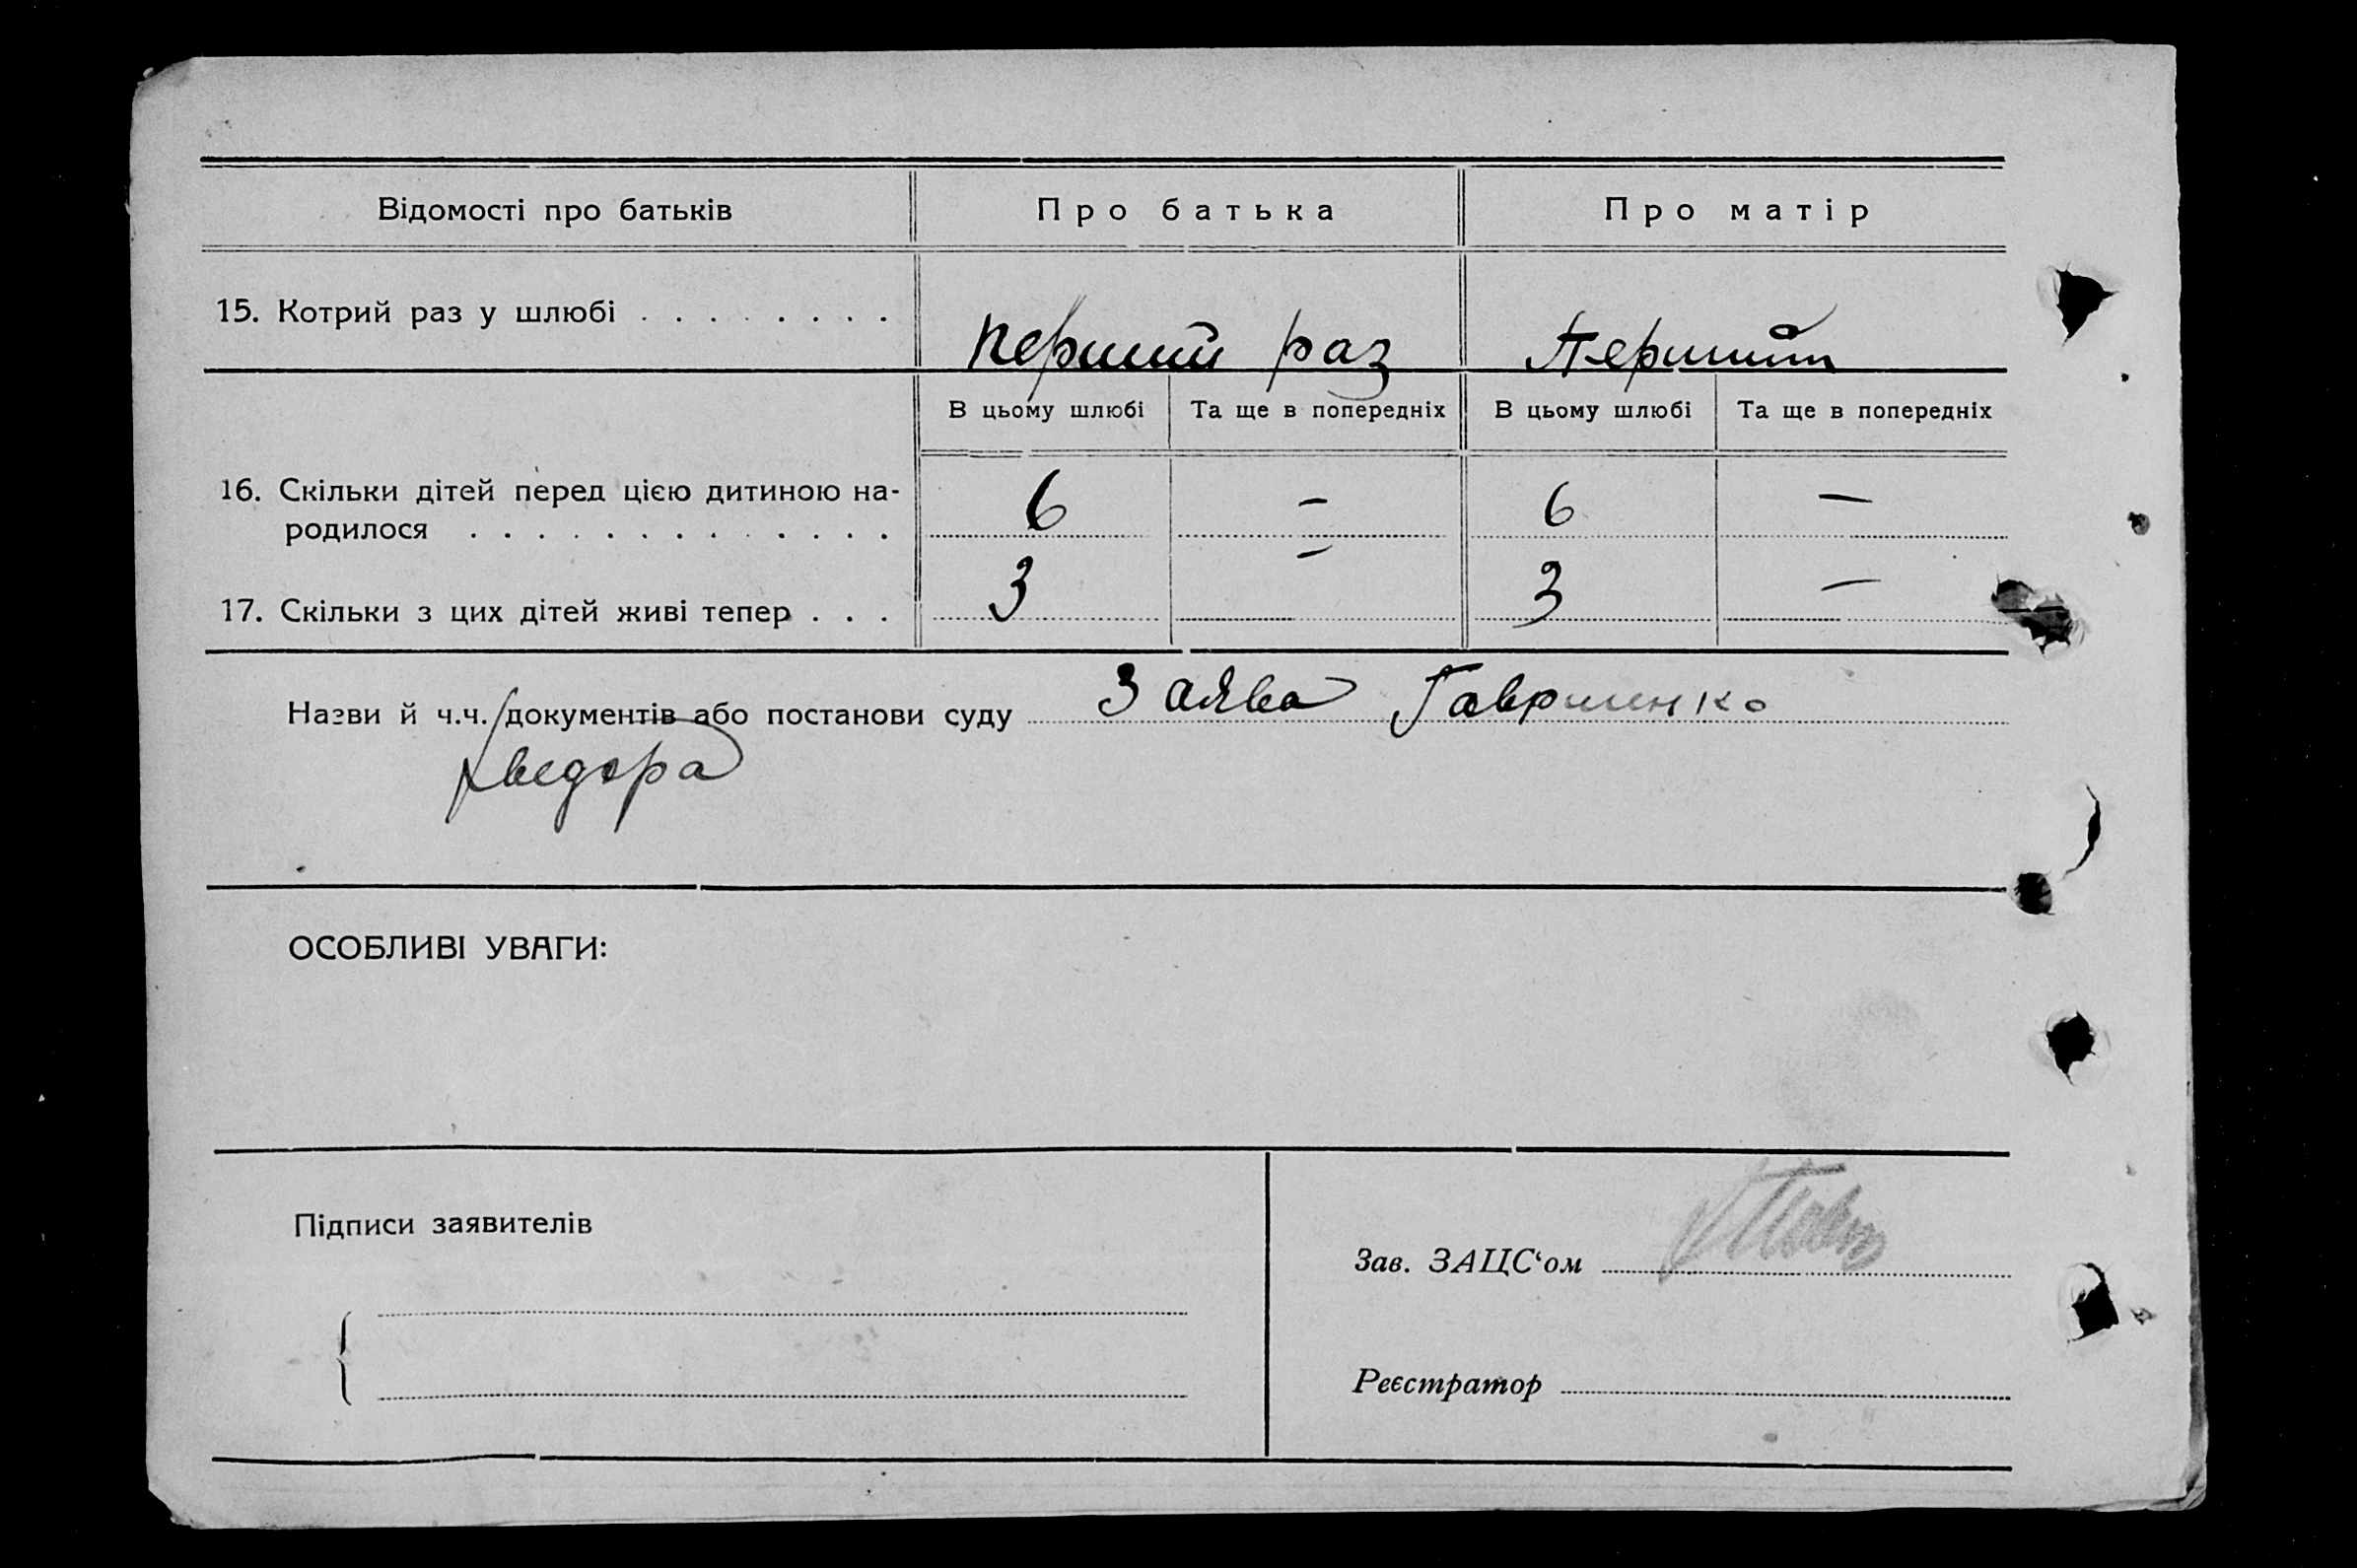 Відомості про батьків Про батька Про матір
15. Котрий раз у шлюбі . . . . . . . . Перший раз Перший
В цьому шлюбі Та ще в попередніх В цьому шлюбі Та ще в попередніх
16. Скільки дітей перед цією дитиною на-
родилося . . . . . . . . . . . . . 6 – 6 –
17. Скільки з цих дітей живі тепер . . . 3 – 3 –
Назви й ч.ч. документів або постанови суду Заява
ОСОБЛИВІ УВАГИ:
Підписи заявителів
Зав. ЗАЦС‘ом
Реєстратор